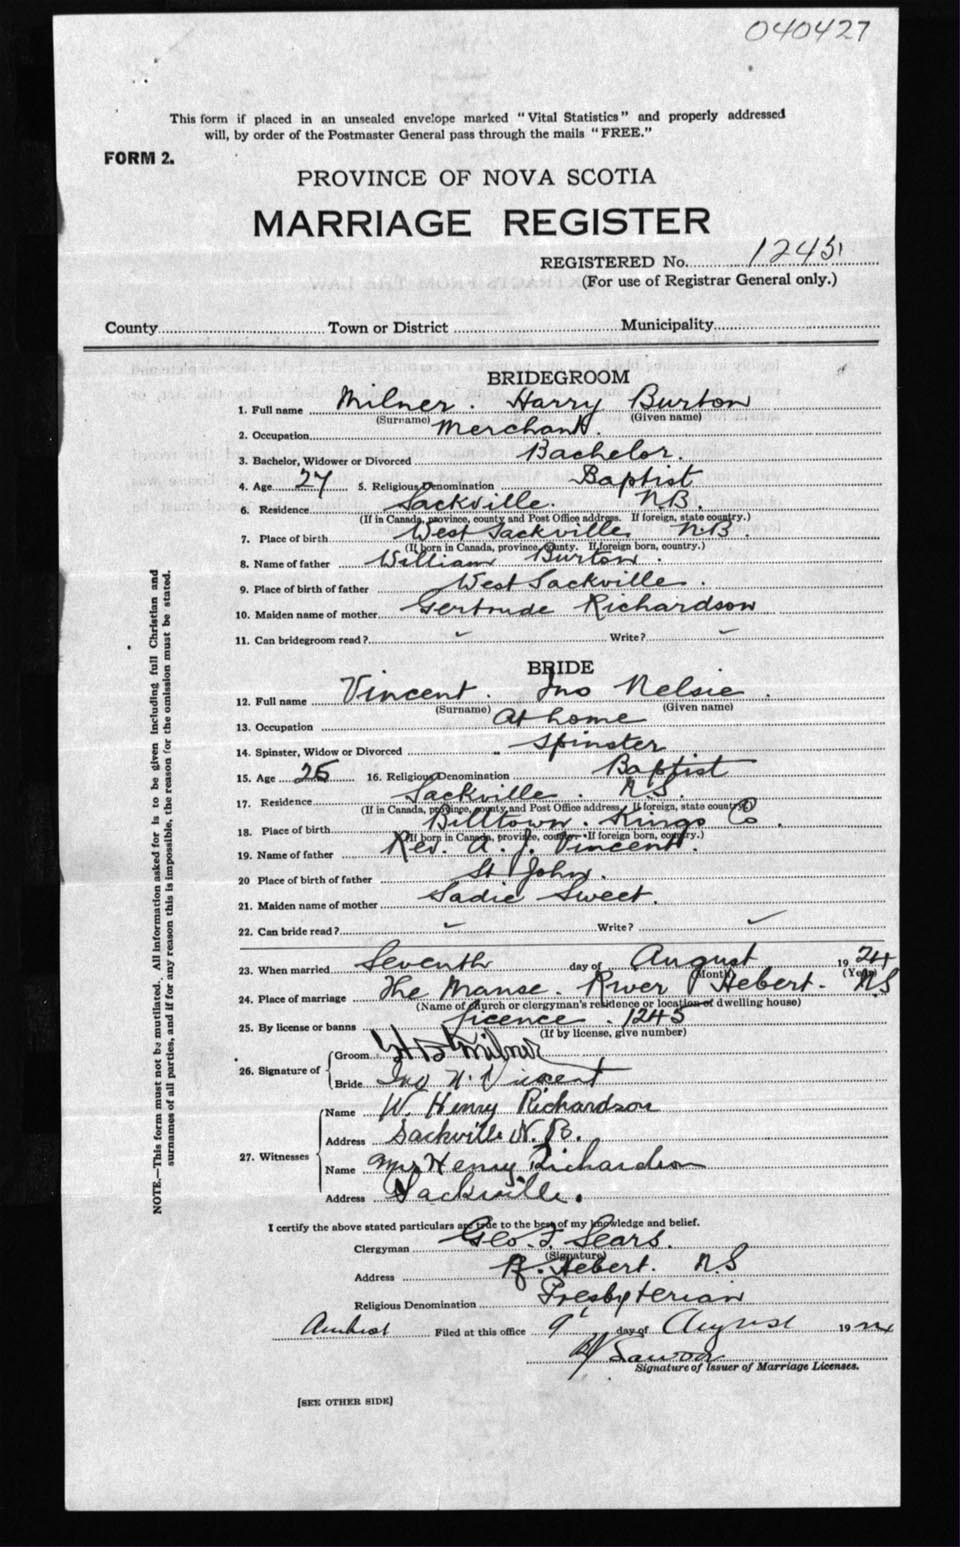 040427
This form if placed in an unsealed envelope marked "Vital Statistics" and properly addressed
will, by order of the Postmaster General pass through the mails "FREE."
FORM 2.
PROVINCE OF NOVA SCOTIA
MARRIAGE REGISTER
REGISTERED No. 1245
(For use of Registrar General only.)
County Town or District Municipality
BRIDEGROOM
1. Full name Milner. Harry Burton
(Surname) (Given name)
2. Occupation Merchant.
3. Bachelor, Widower or Divorced Bachelor.
4. Age 27 5. Religious Denomination Baptist
6. Residence Sackville. N.B.
(If in Canada, province, county and Post Office address. If foreign, state country.)
7. Place of birth West Sackville N.B.
(If born in Canada, province, county. If foreign born, country.)
8. Name of father William Burton.
9. Place of birth of father West Sackville.
10. Maiden name of mother Gertrude Richardson
11. Can bridegroom read? ✓ Write? ✓
BRIDE
12. Full name Vincent. Ino Nelsie.
(Surname) (Given name)
13. Occupation At home
14. Spinster, Widow or Divorced Spinster
15. Age 25 16. Religious Denomination Baptist
17. Residence Sackville. N.S.
(If in Canada, province, county and Post Office address. If foreign, state country)
18. Place of birth Billtown. Kings Co.
(If born in Canada, province, county. If foreign born, country.)
19. Name of father Rev. A. J. Vincent.
20 Place of birth of father St John.
21. Maiden name of mother Sadie Sweet.
22. Can bride read? ✓ Write? ✓
23. When married Seventh day of August 1924
(Month) (Year)
24. Place of marriage The Manse. River Hebert. N.S
(Name of church or clergyman's residence or location of dwelling house)
25. By license or banns Licence. 1245
(If by license, give number)
26. Signature of Groom H B Milner
Bride Ino N. Vincent
27. Witnesses Name W. Henry Richardson
Address Sackville N.B.
Name Mrs Henry Richardson
Address Sackville.
I certify the above stated particulars are true to the best of my knowledge and belief.
Clergyman Geo. F. Sears.
(Signature)
Address R. Hebert. N.S
Religious Denomination Presbyterian
Amherst Filed at this office 9 day of August 1924
Signature of Issuer of Marriage Licenses.
[SEE OTHER SIDE]
NOTE.—This form must not be mutilated. All information asked for is to be given including full Christian and
surnames of all parties, and if for any reason this is impossible, the reason for the omission must be stated.